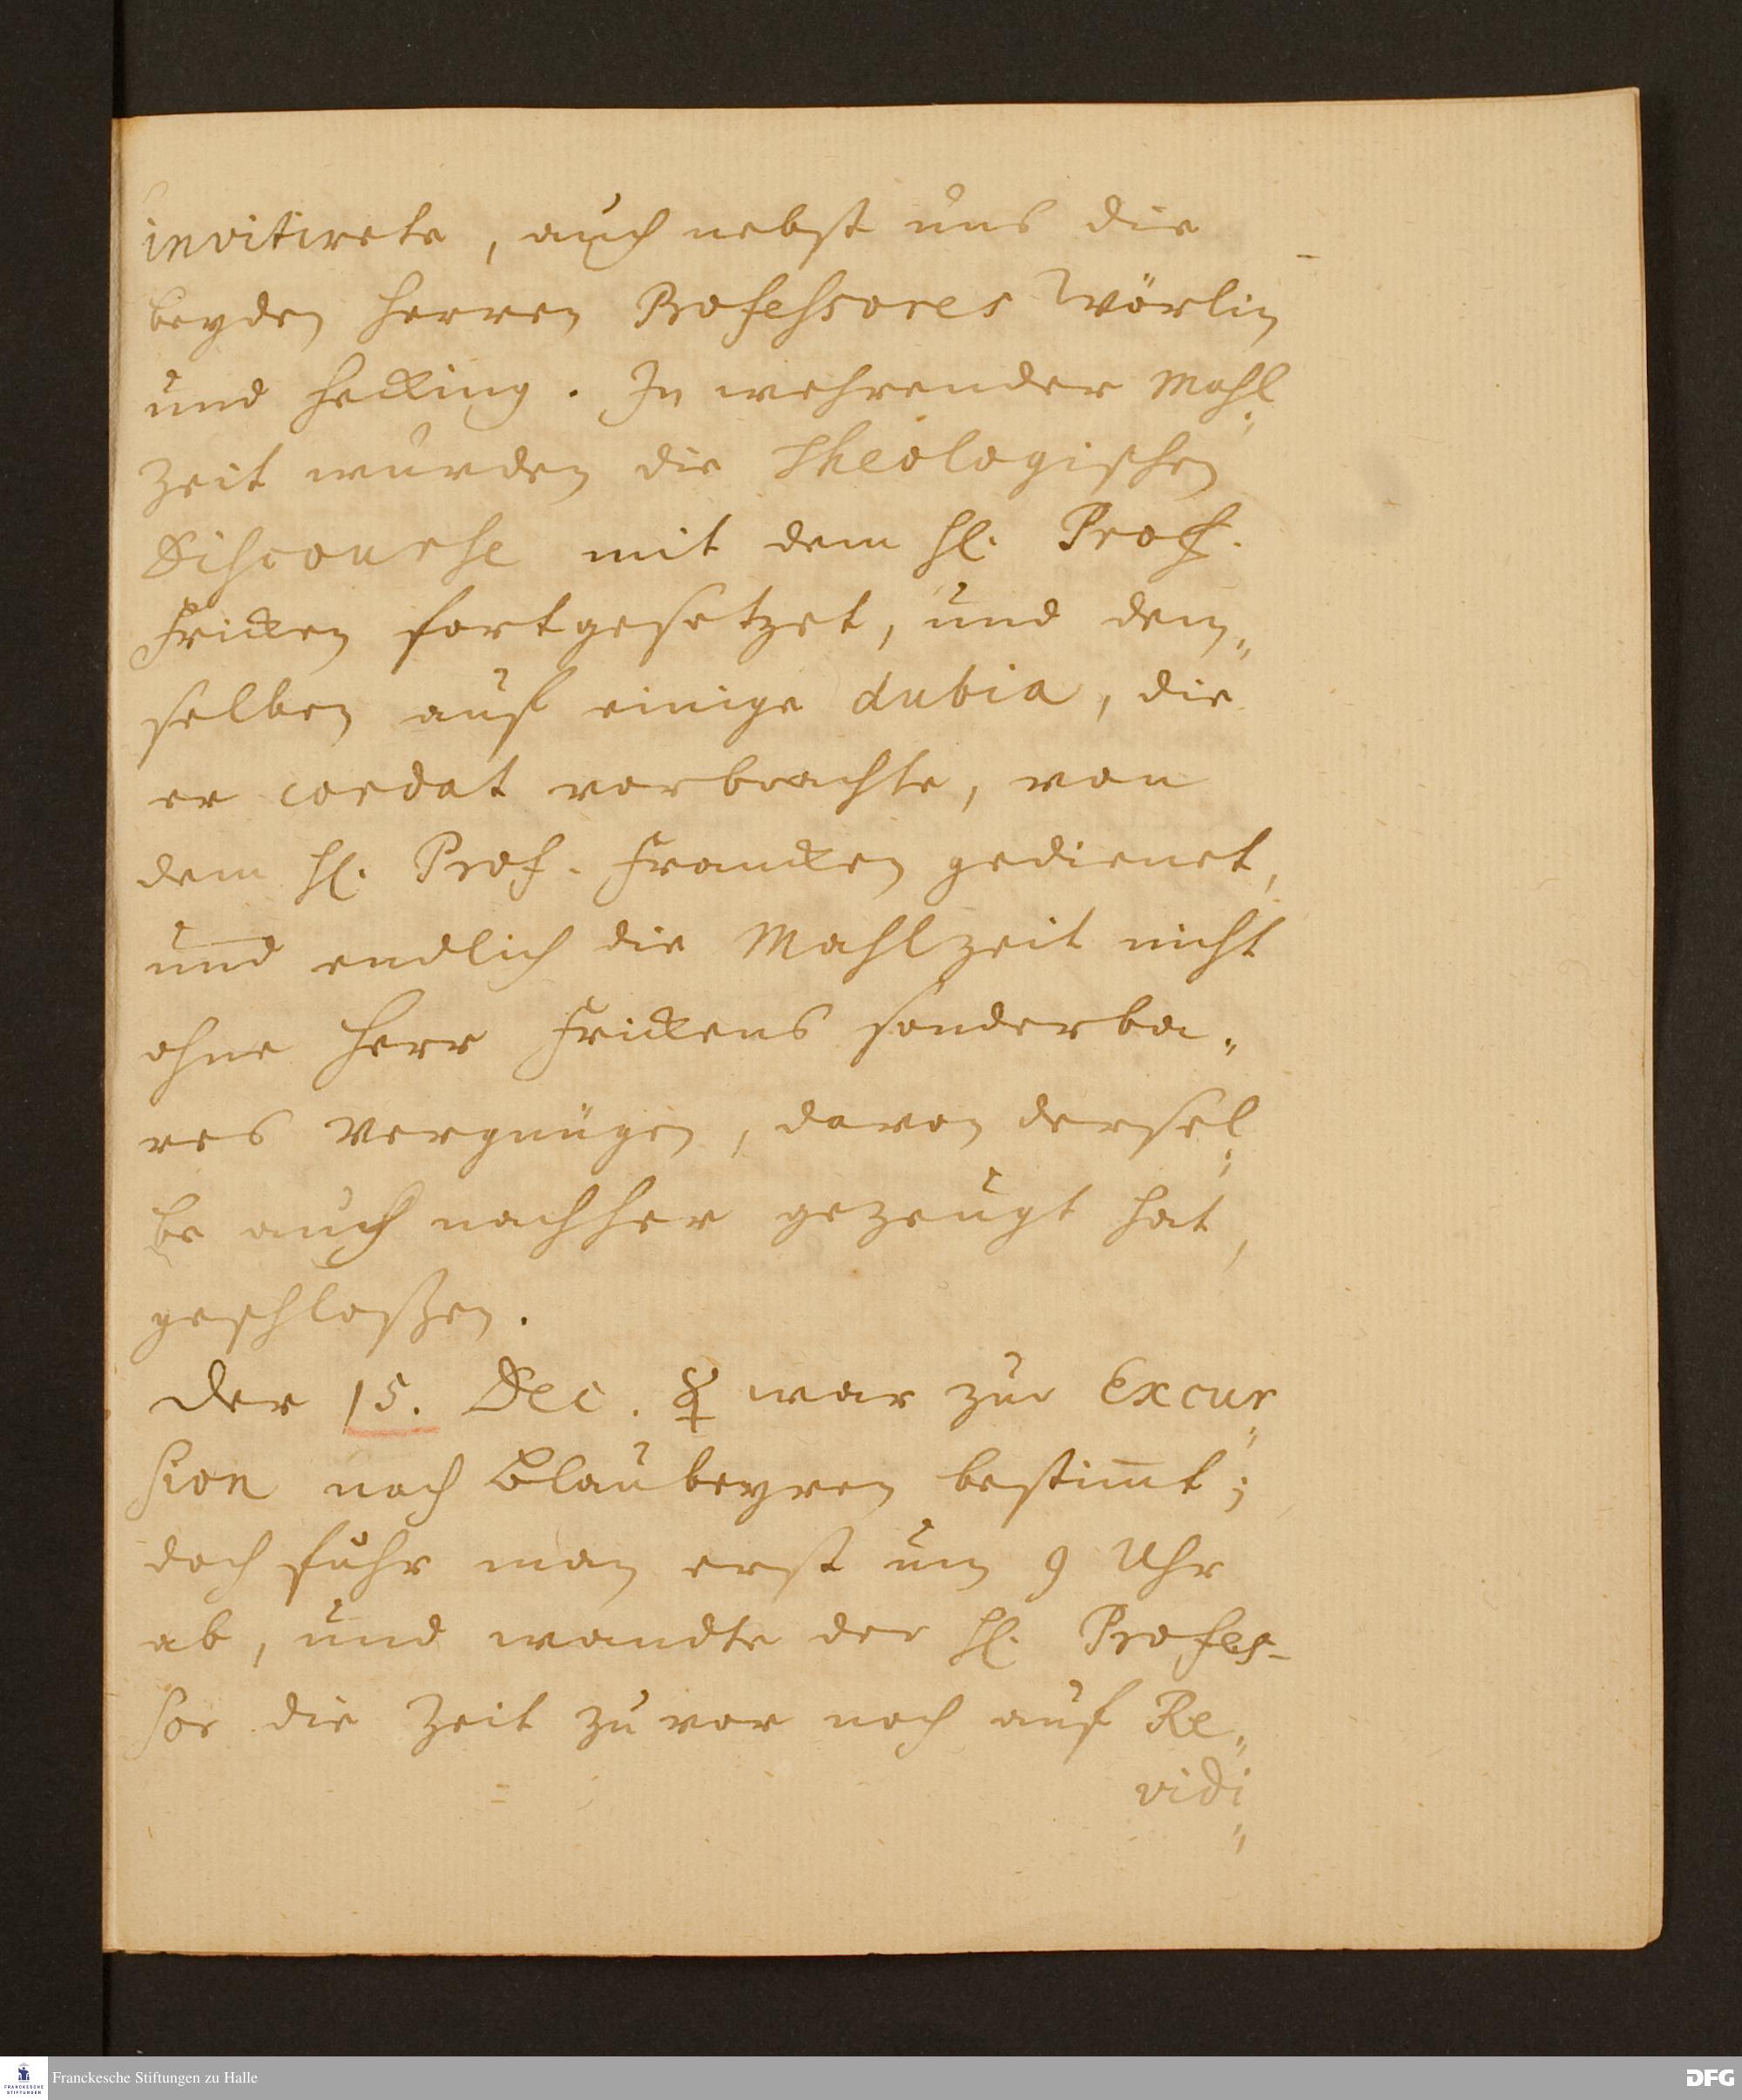 invitirete, auch nebst uns die
beyden Herren Professores Wörlin
und Hecking. In wehrender Mahl„
zeit wurden die Theologischen
Discourse mit dem HE. Prof.
Fricken fortgesetzet, und dem„
selben auf einige dubia, die
er cordat vorbrachte, von
dem HE. Prof. Francken gedienet,
und endlich die Mahlzeit nicht
ohne Herr Frickens sonderba„
res Vergnügen, davon dersel„
be auch nachher gezeugt hat,
geschloßen.
Der 15. Dec. ☿ war zur Excur„
sion nach Blaubeyren bestimt;
doch fuhr man erst um 9 Uhr
ab, und wandte der HE. Profes-
sor die Zeit zuvor noch auf Re„
vidi„
Franckesche Stiftungen zu Halle
FRANCKESCHE
STIFTUNGEN
DFG